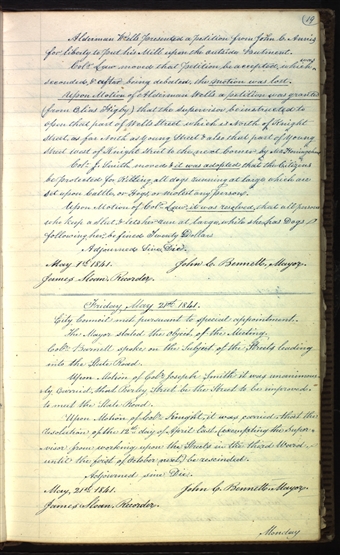 19
Alderman Wells presented a petition from John C. Annis
for liberty to put his Mill upon the outside Pentiment.
Colr. Law moved that petition be accepted, which was
seconded, & after being debated, the motion was lost.
Upon Motion of Alderman Wells a petition was granted
(from Elias Higby) that the Supervisor be instructed to
open that part of Wells Street which is North of Knight
Street, as far North as Young Street & also that part of Young
Street East of Knight Street to the great Corner by Mr.
Colr. J. Smith, moved & it was adopted that the Citizens
be protected for Killing all dogs running at large which are
set upon Cattle, or Hogs, or molest any persons."
Upon Motion of Colr. Law, it was resolved, that all persons
who keep a Slut & lets her run at large, while she has Dogs
following her, be fined Twenty Dollars.
Adjourned Sine Die.
May 1st 1841. John C. Bennett, Mayor.
James Sloan, Recorder.
Friday, May 21st 1841.
City Council met pursuant to special appointment.
The Mayor stated the object of the Meeting.
Colr. Barnett spoke on the Subject of the Streets leading
into the State Road.
Upon Motion of Colr. Joseph Smith it was unanimous-
ly Carried, that Street be the Street to be improved
to meet the State Road.
Upon Motion of Colr. Knight, it was carried that the
Resolution of the 12th day of April last (exempting the Super-
visor from working upon the Streets in the third Ward,
until the first of October next) be rescinded.
Adjourned sine Die.
May, 21st 1841. John C. Bennett Mayor.
James Sloan, Recorder.
Monday